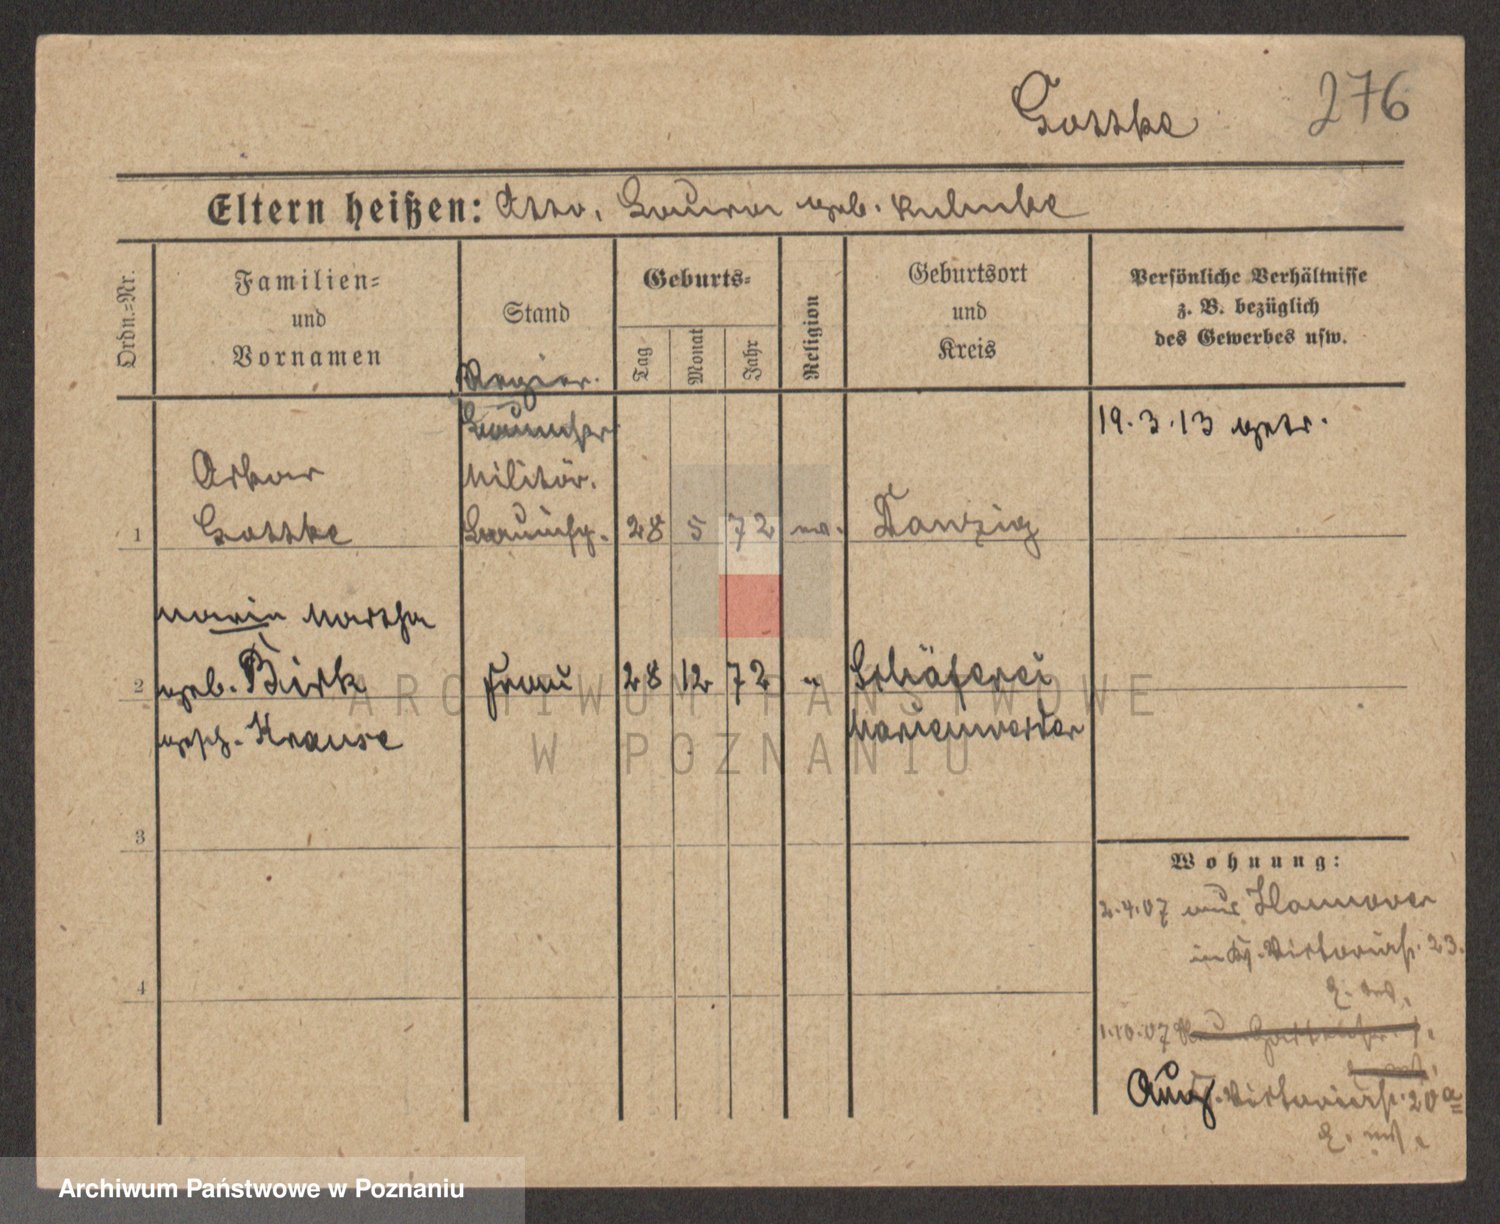 Gottke 276
Eltern heißen: Otto, Laura geb. Kuhnke
Ordn.=Nr.
Familien=
und
Vornamen
Stand
Geburts=
Tag
Monat
Jahr
Religion
Geburtsort
und
Kreis
Persönliche Verhältnisse
z. B. bezüglich
des Gewerbes usw.
Regier.
19.3.13 getr.
Oskar
Militär.
1 Gottke Bauinsp. 28 5 72 ev. Danzig
Marie Martha
2 geb. Birk Frau 28 12 72 " Schäferei
gesch. Krause Marienwerder
3
Wohnung:
2.4.07 aus Hannover
in Viktoriastr. 23.
4
1.10.07
Aug. Viktoriastr. 20a
ARCHIWUM PAŃSTWOWE
W POZNANIU
Archiwum Państwowe w Poznaniu